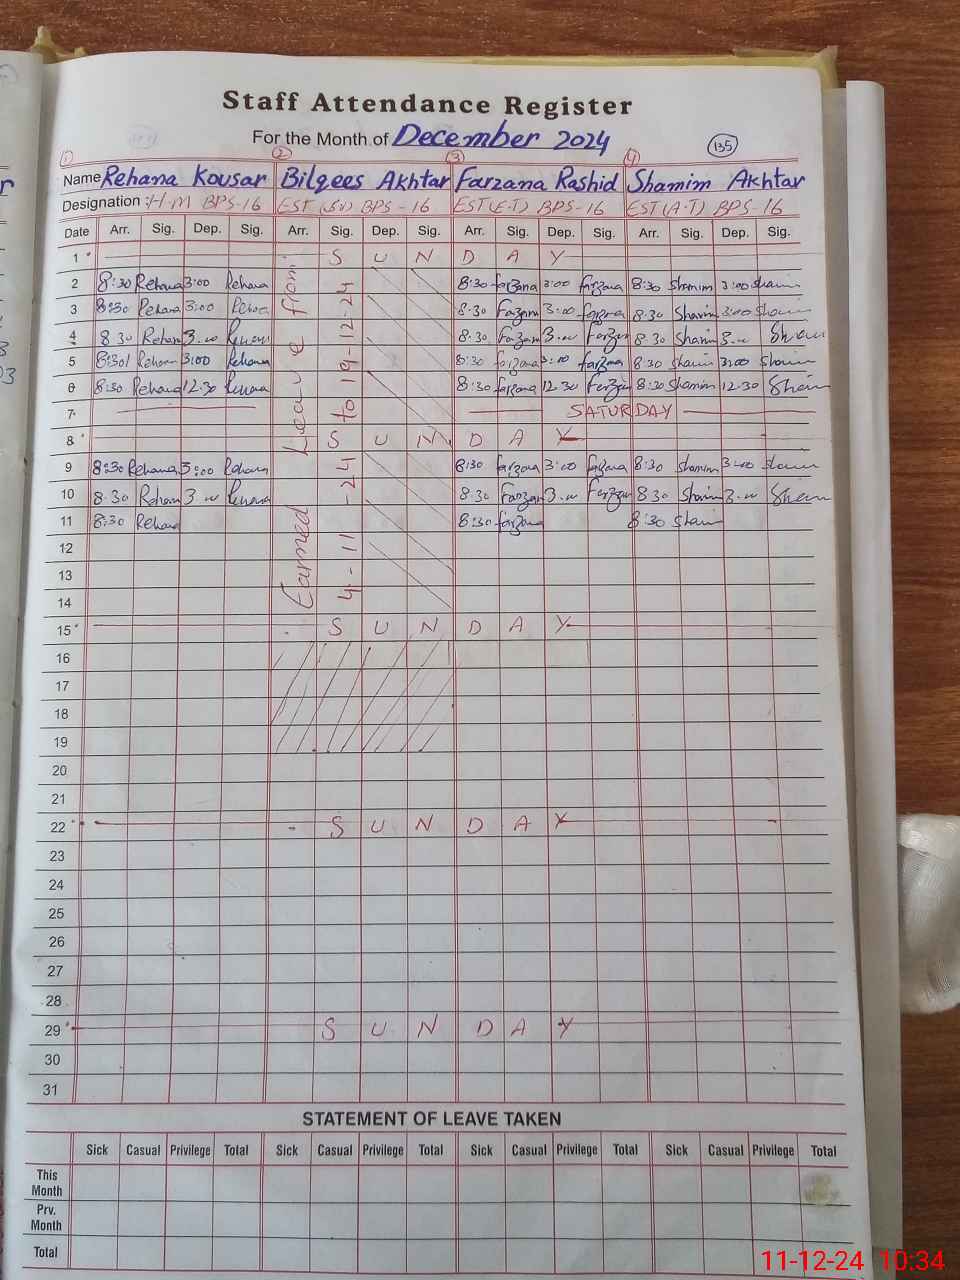 Staff Attendance Register
For the Month of December 2024
135
1 2 3 4
Name Rehana Kousar Bilqees Akhtar Farzana Rashid Shamim Akhtar
Designation : H.M BPS-16 EST (Sr) BPS-16 EST (E.T) BPS-16 EST (A.T) BPS-16
Date Arr. Sig. Dep. Sig. Arr. Sig. Dep. Sig. Arr. Sig. Dep. Sig. Arr. Sig. Dep. Sig.
Earned Leave from
4-11-24 to 19-12-24
1 S U N D A Y
2 8:30 Rehana 3:00 Rehana 8:30 farzana 3:00 farzana 8:30 Shamim 3:00 Shamim
3 8:30 Rehana 3:00 8:30 Farzana 3:00 farzana 8:30 Shamim 3:00
4 8:30 Rehana 3:00 8:30 Farzana 3:00 Farzana 8:30 Shamim 3:00
5 8:30 Rehana 3:00 Rehana 8:30 farzana 3:00 farzana 8:30 3:00
6 8:30 Rehana 12:30 8:30 farzana 12:30 Farzana 8:30 Shamim 12:30
7 SATURDAY
8 S U N D A Y
9 8:30 Rehana 3:00 Rehana 8:30 farzana 3:00 farzana 8:30 Shamim 3:00
10 8:30 Rehana 3:00 Rehana 8:30 Farzana 3:00 Farzana 8:30 Shamim 3:00
11 8:30 Rehana 8:30 farzana 8:30
12
13
14
15 S U N D A Y
16
17
18
19
20
21
22 S U N D A Y
23
24
25
26
27
28
29 S U N D A Y
30
31
STATEMENT OF LEAVE TAKEN
Sick Casual Privilege Total Sick Casual Privilege Total Sick Casual Privilege Total Sick Casual Privilege Total
This
Month
Prv.
Month
Total
11-12-24 10:34